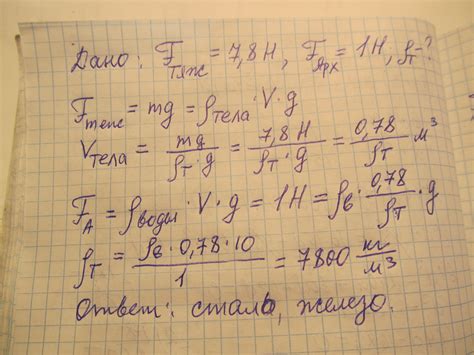 Дано: Fтяж = 7,8 Н, Fарх = 1Н, ρт - ?
Fтяж = mg = ρтела · V · g
Vтела = mg / ρт · g = 7,8 Н / ρт · g = 0,78 / ρт м³
FА = ρводы · V · g = 1Н = ρв · 0,78 / ρт · g
ρт = ρв · 0,78 · 10 / 1 = 7800 кг/м³
Ответ: сталь, железо.